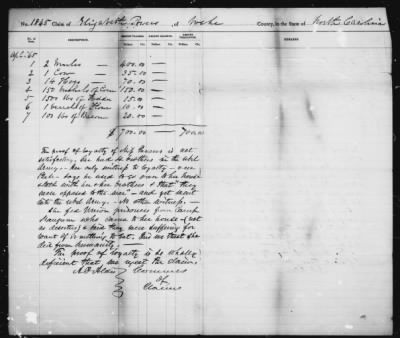 No. 1865 Claim of Elizabeth Powers of Wake County, in the State of North Carolina
DESCRIPTION. REMARKS.
1 2 Mules — 400.00 —
2 1 Cow — 35.00 —
3 14 Hogs — 70.00 —
4 150 bushels of Corn 150.00 —
5 1500 lbs of Fodder 15.00 —
6 1 barrel of Flour 10.00 —
7 100 lbs of Bacon 20.00 —
$700.00 —
The proof of loyalty of Miss is not
satisfactory. She had brothers in the rebel
Army. Her only witness to loyalty
says he used to go over to her house
& talk with her & her brothers & that "they
were opposed to the war" — and yet went
into the rebel Army. No other witness.
She fed Union prisoners from Camp
who came to her house (not
as deserters) & said they were suffering for
want of something to eat. This we trust she
did from humanity. —
The proof of loyalty is so wholly
deficient that we reject the claim
A.O. Aldis Commrs
of
Claims